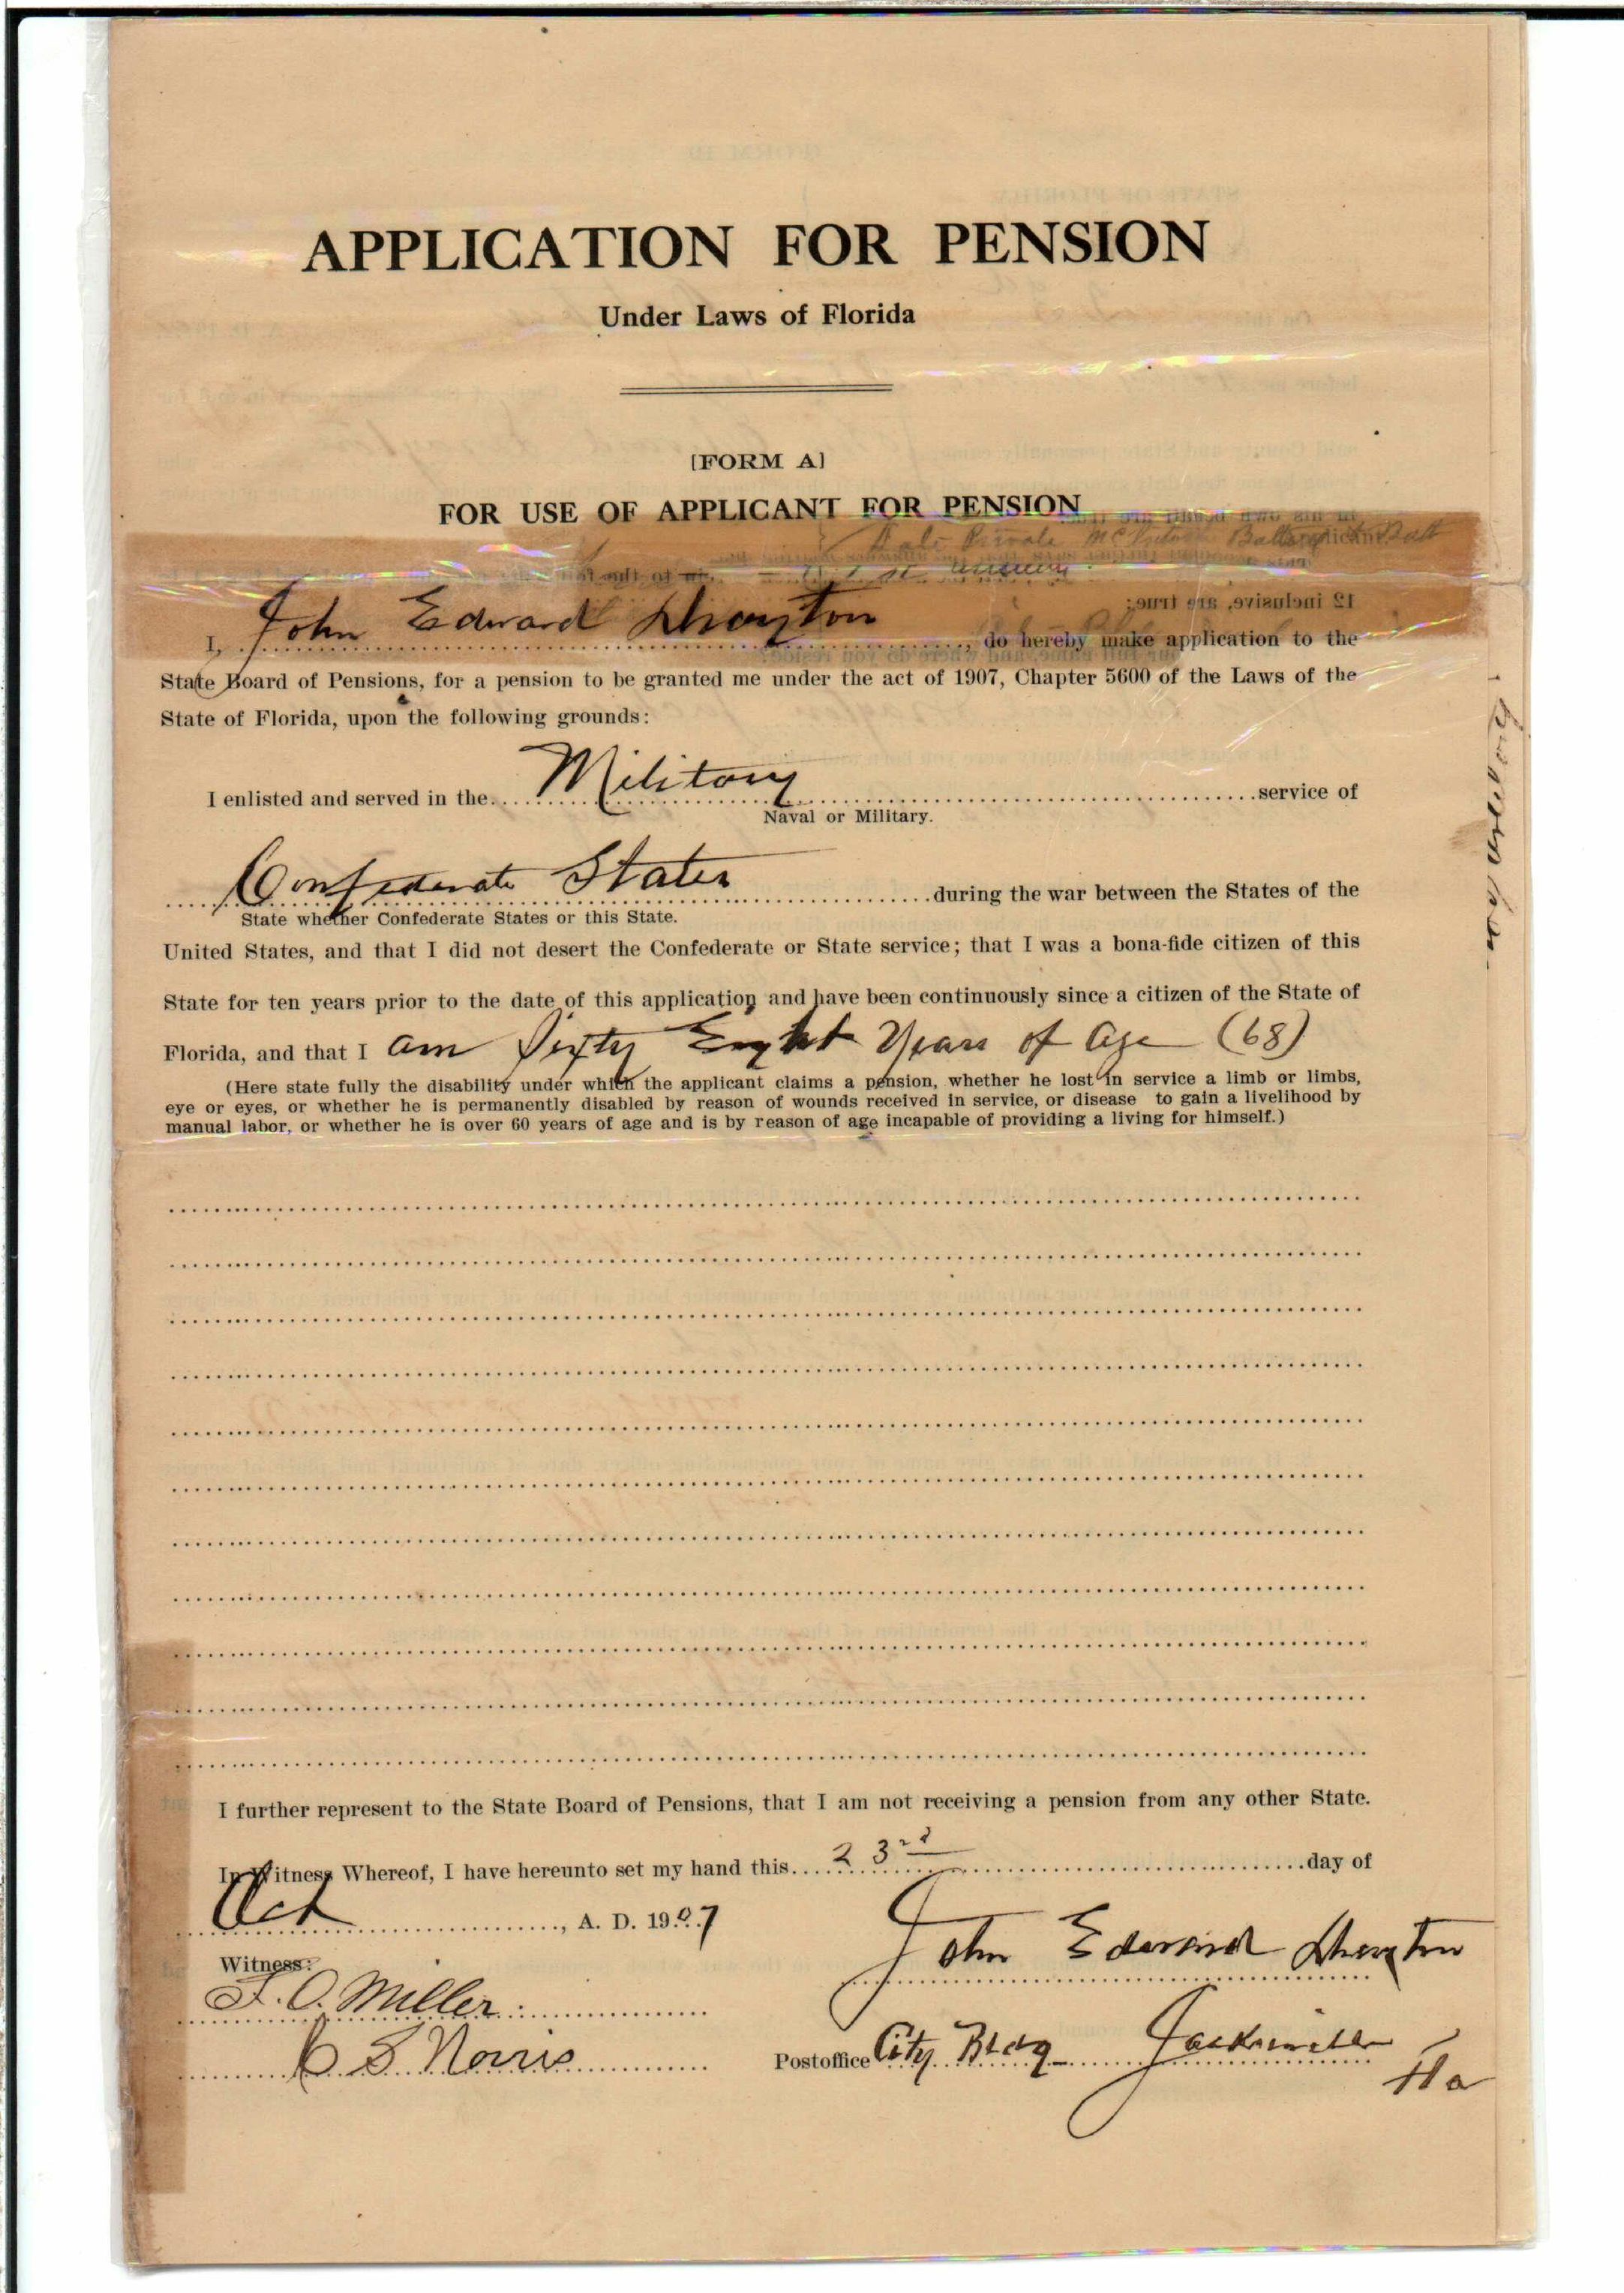 APPLICATION FOR PENSION
Under Laws of Florida
[FORM A]
FOR USE OF APPLICANT FOR PENSION
Late Private McIntosh Battery
I, John Edward Drayton, do hereby make application to the
State Board of Pensions, for a pension to be granted me under the act of 1907, Chapter 5600 of the Laws of the
State of Florida, upon the following grounds:
I enlisted and served in the Military service of
Naval or Military.
Confederate States during the war between the States of the
State whether Confederate States or this State.
United States, and that I did not desert the Confederate or State service; that I was a bona-fide citizen of this
State for ten years prior to the date of this application and have been continuously since a citizen of the State of
Florida, and that I am Sixty Eight Years of Age (68)
(Here state fully the disability under which the applicant claims a pension, whether he lost in service a limb or limbs,
eye or eyes, or whether he is permanently disabled by reason of wounds received in service, or disease to gain a livelihood by
manual labor, or whether he is over 60 years of age and is by reason of age incapable of providing a living for himself.)
I further represent to the State Board of Pensions, that I am not receiving a pension from any other State.
In Witness Whereof, I have hereunto set my hand this 23rd day of
Oct, A. D. 1907
John Edward Drayton
Witness:
F. O. Miller
C S Norris
Postoffice City Bldg Jacksonville
Fla